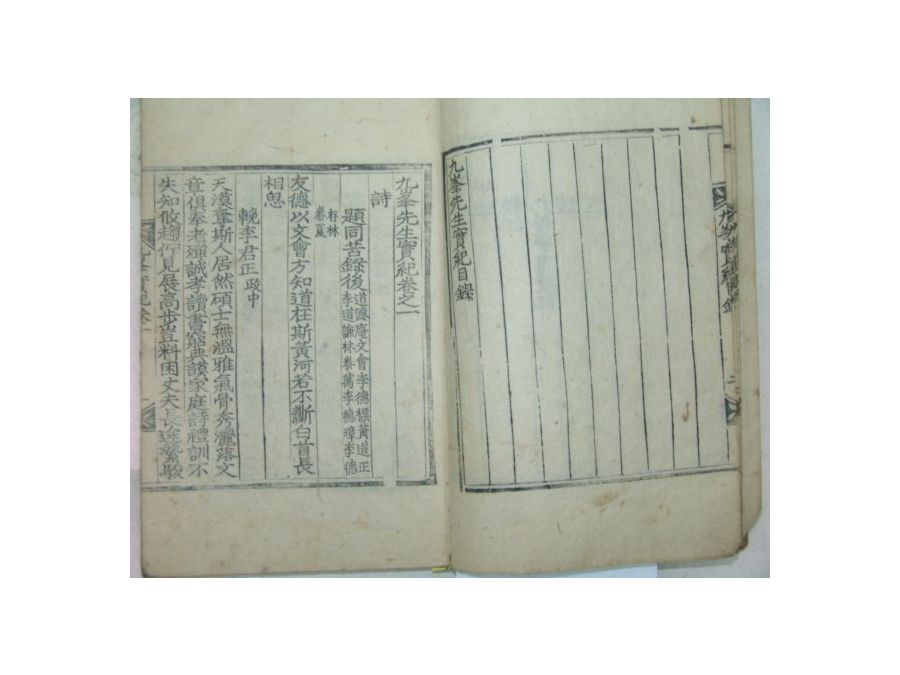 九峯先生實紀目錄
九峯先生實紀卷之一
詩
題同苦錄後 道憫庵文會李德標黃道正
李道謙林泰萬李德璋李德
春林
泰夏
友德以文會方知道在斯黃河若不斷白首長
相思
輓李君正 政中
天漢韋斯人居然碩士無溫雅氣骨秀灑落文
章俱奉老殫誠孝讀書窮典謨家庭詩禮訓不
失知攸趨行見展高步豈料困丈夫長途縶駿